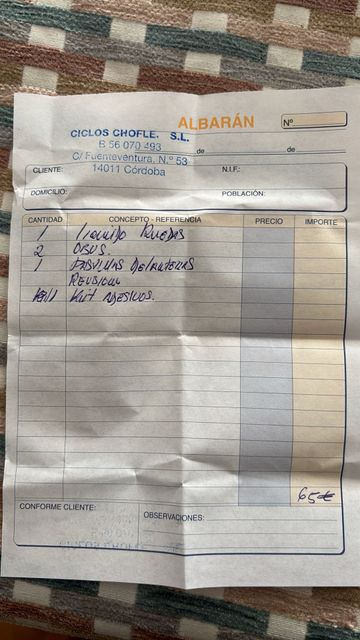 ALBARÁN
Nº
CICLOS CHOFLE. S.L.
B 56 070 493
C/ Fuenteventura, N.º 53
14011 Córdoba
de de
CLIENTE: N.I.F.:
DOMICILIO: POBLACIÓN:
CANTIDAD CONCEPTO - REFERENCIA PRECIO IMPORTE
1 Liquido Ruedas
2 OBUS.
1 Delanteras
Revision
Kit
65€
CONFORME CLIENTE:
OBSERVACIONES: